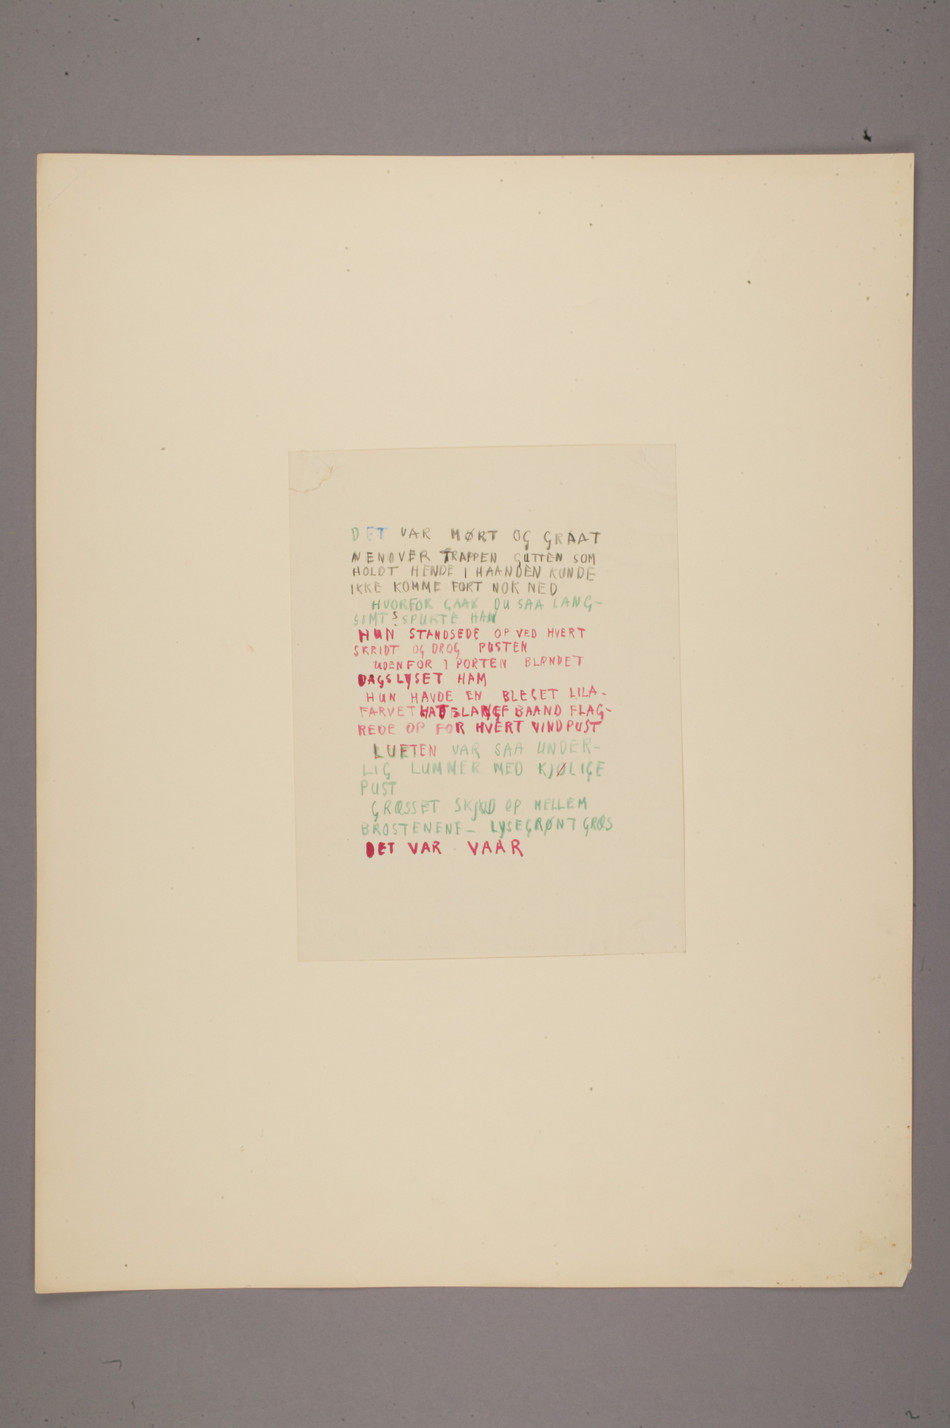 DET VAR MØRT OG GRAAT
NEDOVER TRAPPEN GUTTEN SOM
HOLDT HENDE I HAANDEN KUNDE
IKKE KOMME FORT NOK NED
HVORFOR GAAR DU SAA LANG-
SIMT SPURTE HAN
HUN STANDSEDE OP VED HVERT
SKRIDT OG DROG PUSTEN
UDENFOR I PORTEN BLENDET
DAGSLYSET HAM
HUN HAVDE EN BLEGET LILA-
FARVET HAT LANGE BAAND FLAG-
REDE OP FOR HVERT VINDPUST
LUFTEN VAR SAA UNDER-
LIG LUMMER MED KJØLIGE
PUST
GRÆSSET SKJØD OP MELLEM
BROSTENENE – LYSEGRØNT GRÆS
DET VAR VAAR